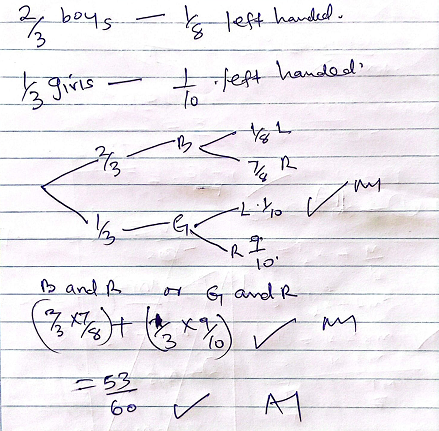 2/3 boys — 1/8 left handed.
1/3 girls — 1/10 left handed.
1/8 L
2/3 B
7/8 R
L 1/10 ✓ M1
1/3 G
R 9/10.
B and R or G and R
(2/3 × 7/8) + (1/3 × 9/10) ✓ M1
= 53/60 ✓ A1